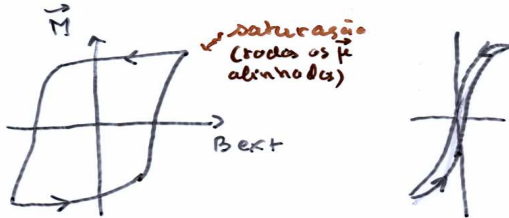 M
saturação
(todos os μ
alinhados)
B ext